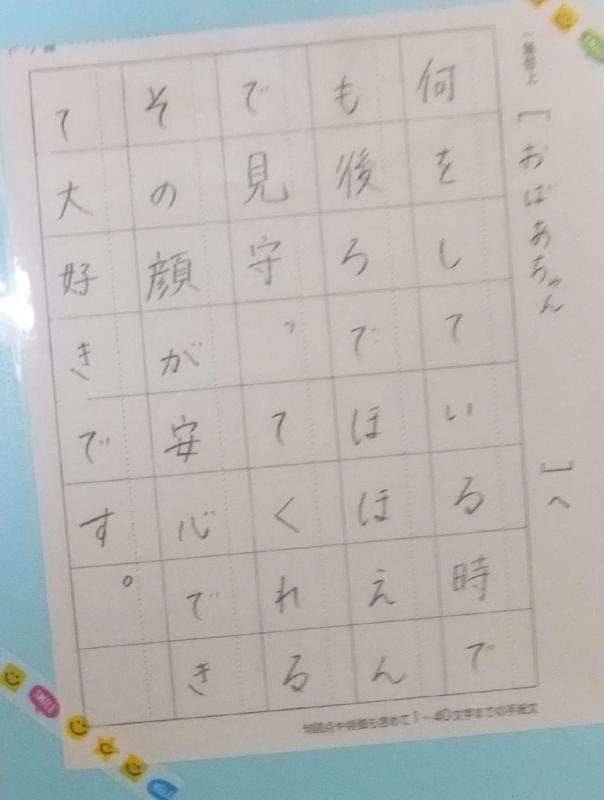 一筆啓上
「おばあちゃん」へ
何をしている時で
も後ろでほほえん
で見守ってくれる
その顔が安心でき
て大好きです。
句読点や括弧も含めて1〜40文字までの手紙文
SMILE